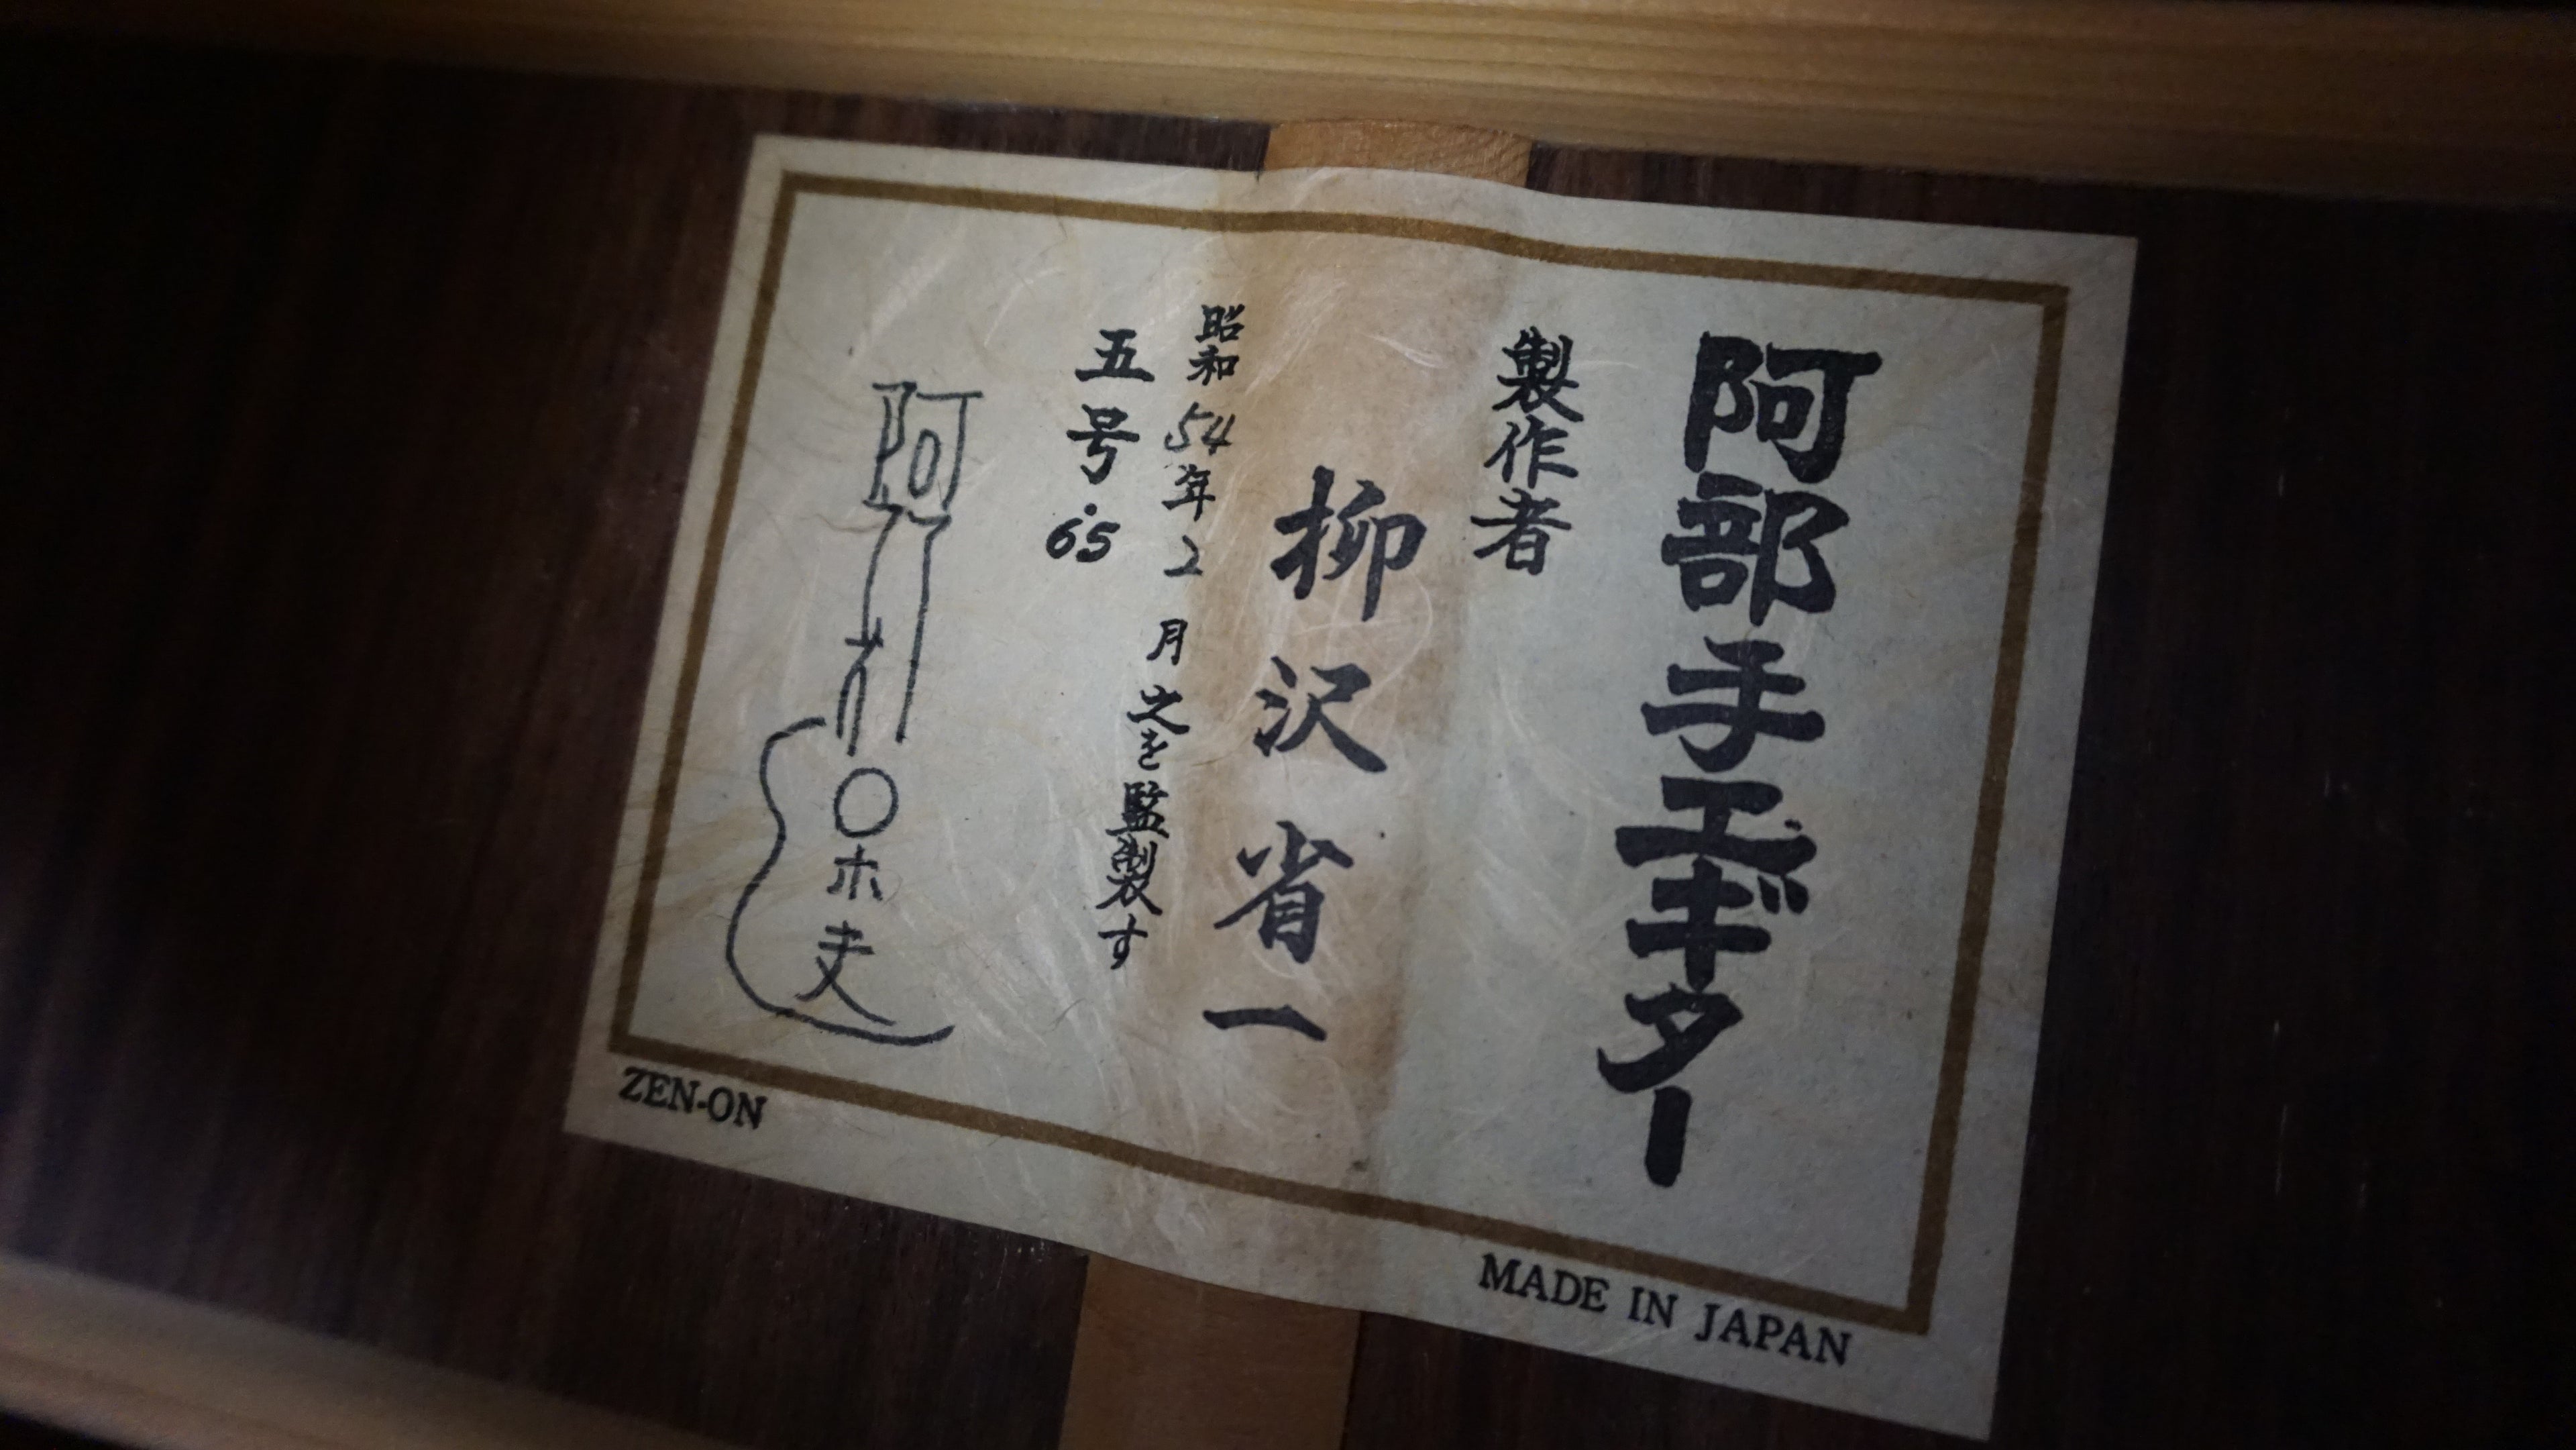 阿部手工ギター
製作者
柳沢省一
昭和54年2月之を監製す
五号.65
阿
ホ
夫
ZEN-ON
MADE IN JAPAN